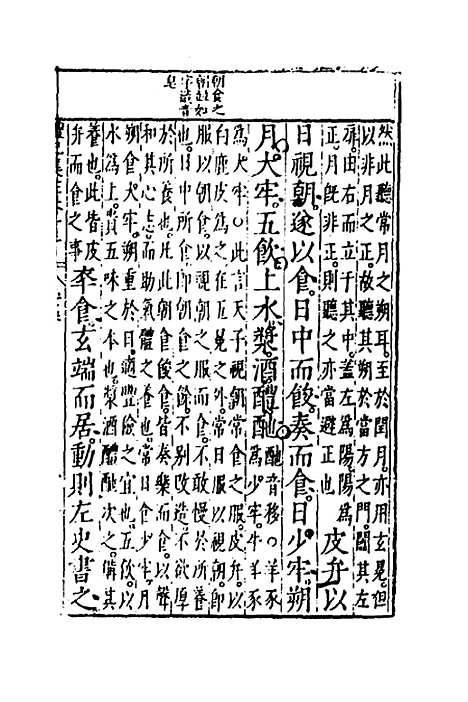 朝食之
朝並如
字諸音
然此聽常月之朔耳至於閏月亦用玄冕但
以非月之正故聽其朔於當方之門闔其左
扉由右而立于其中蓋左為陽陽為
正月旣非正則聽之亦當避正也
皮弁以
日視朝遂以食日中而餕奏而食日少牢朔
月大牢五飲上水漿酒醴酏
酏音移○羊豕
為少牢牛羊豕
為大牢○此言天子視朝常食之服皮弁以
白鹿皮為之在五冕之外常日服以視朝即
服以朝食以視朝之服而食不敢慢於所養
也日中所食即朝食之餘不別改造不欲厚
於所養也凡此朝食餕食皆奏樂而食以聲
和其心志而助氣體之養也常日食少牢月
朔食大牢朔重於日適豐儉之宜也五飲以
水為上貴五味之本也漿酒醴酏次之備其
養也此皆皮
弁而食之事
卒食玄端而居動則左史書之